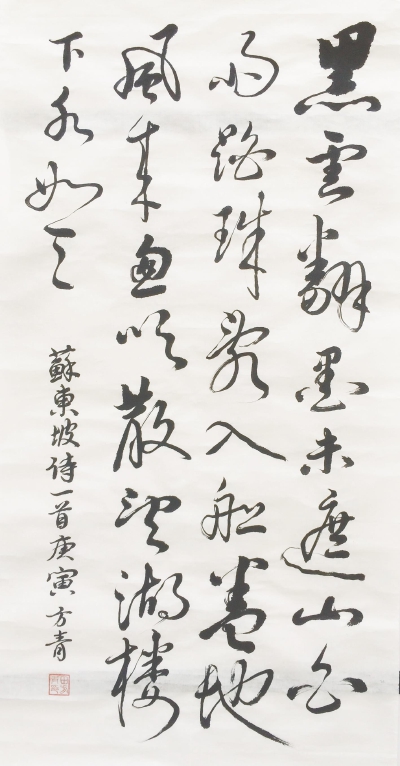 黑雲翻墨未遮山白
雨跳珠亂入船卷地
風来忽吹散望湖樓
下水如天
蘇東坡詩一首庚寅方青